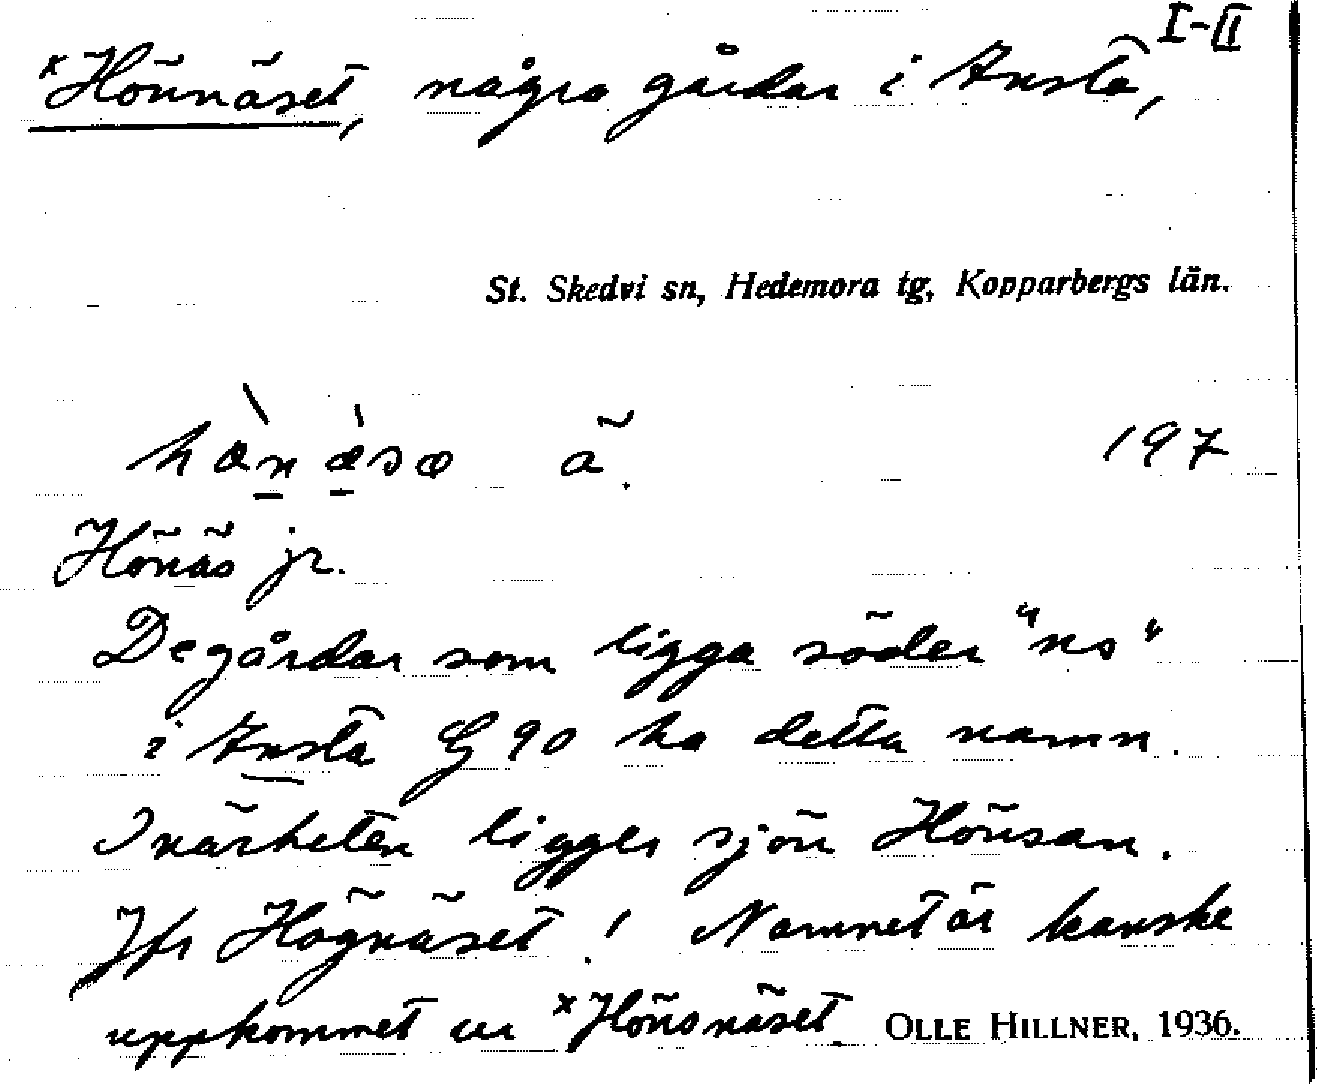 I-II
xHönnäset, några gårdar i Ansta,
St. Skedvi sn, Hedemora tg, Kopparbergs län.
hæ̀n æ̍sæ ä. 197
Hönäs jr.
De gårdar som ligga söder "ns"
i Ansta G 90 ha detta namn.
I närheten ligger sjön Hönsan.
Jfr Högnäset! Namnet är kanske
uppkommet ur xHönsnäset. OLLE HILLNER, 1936.